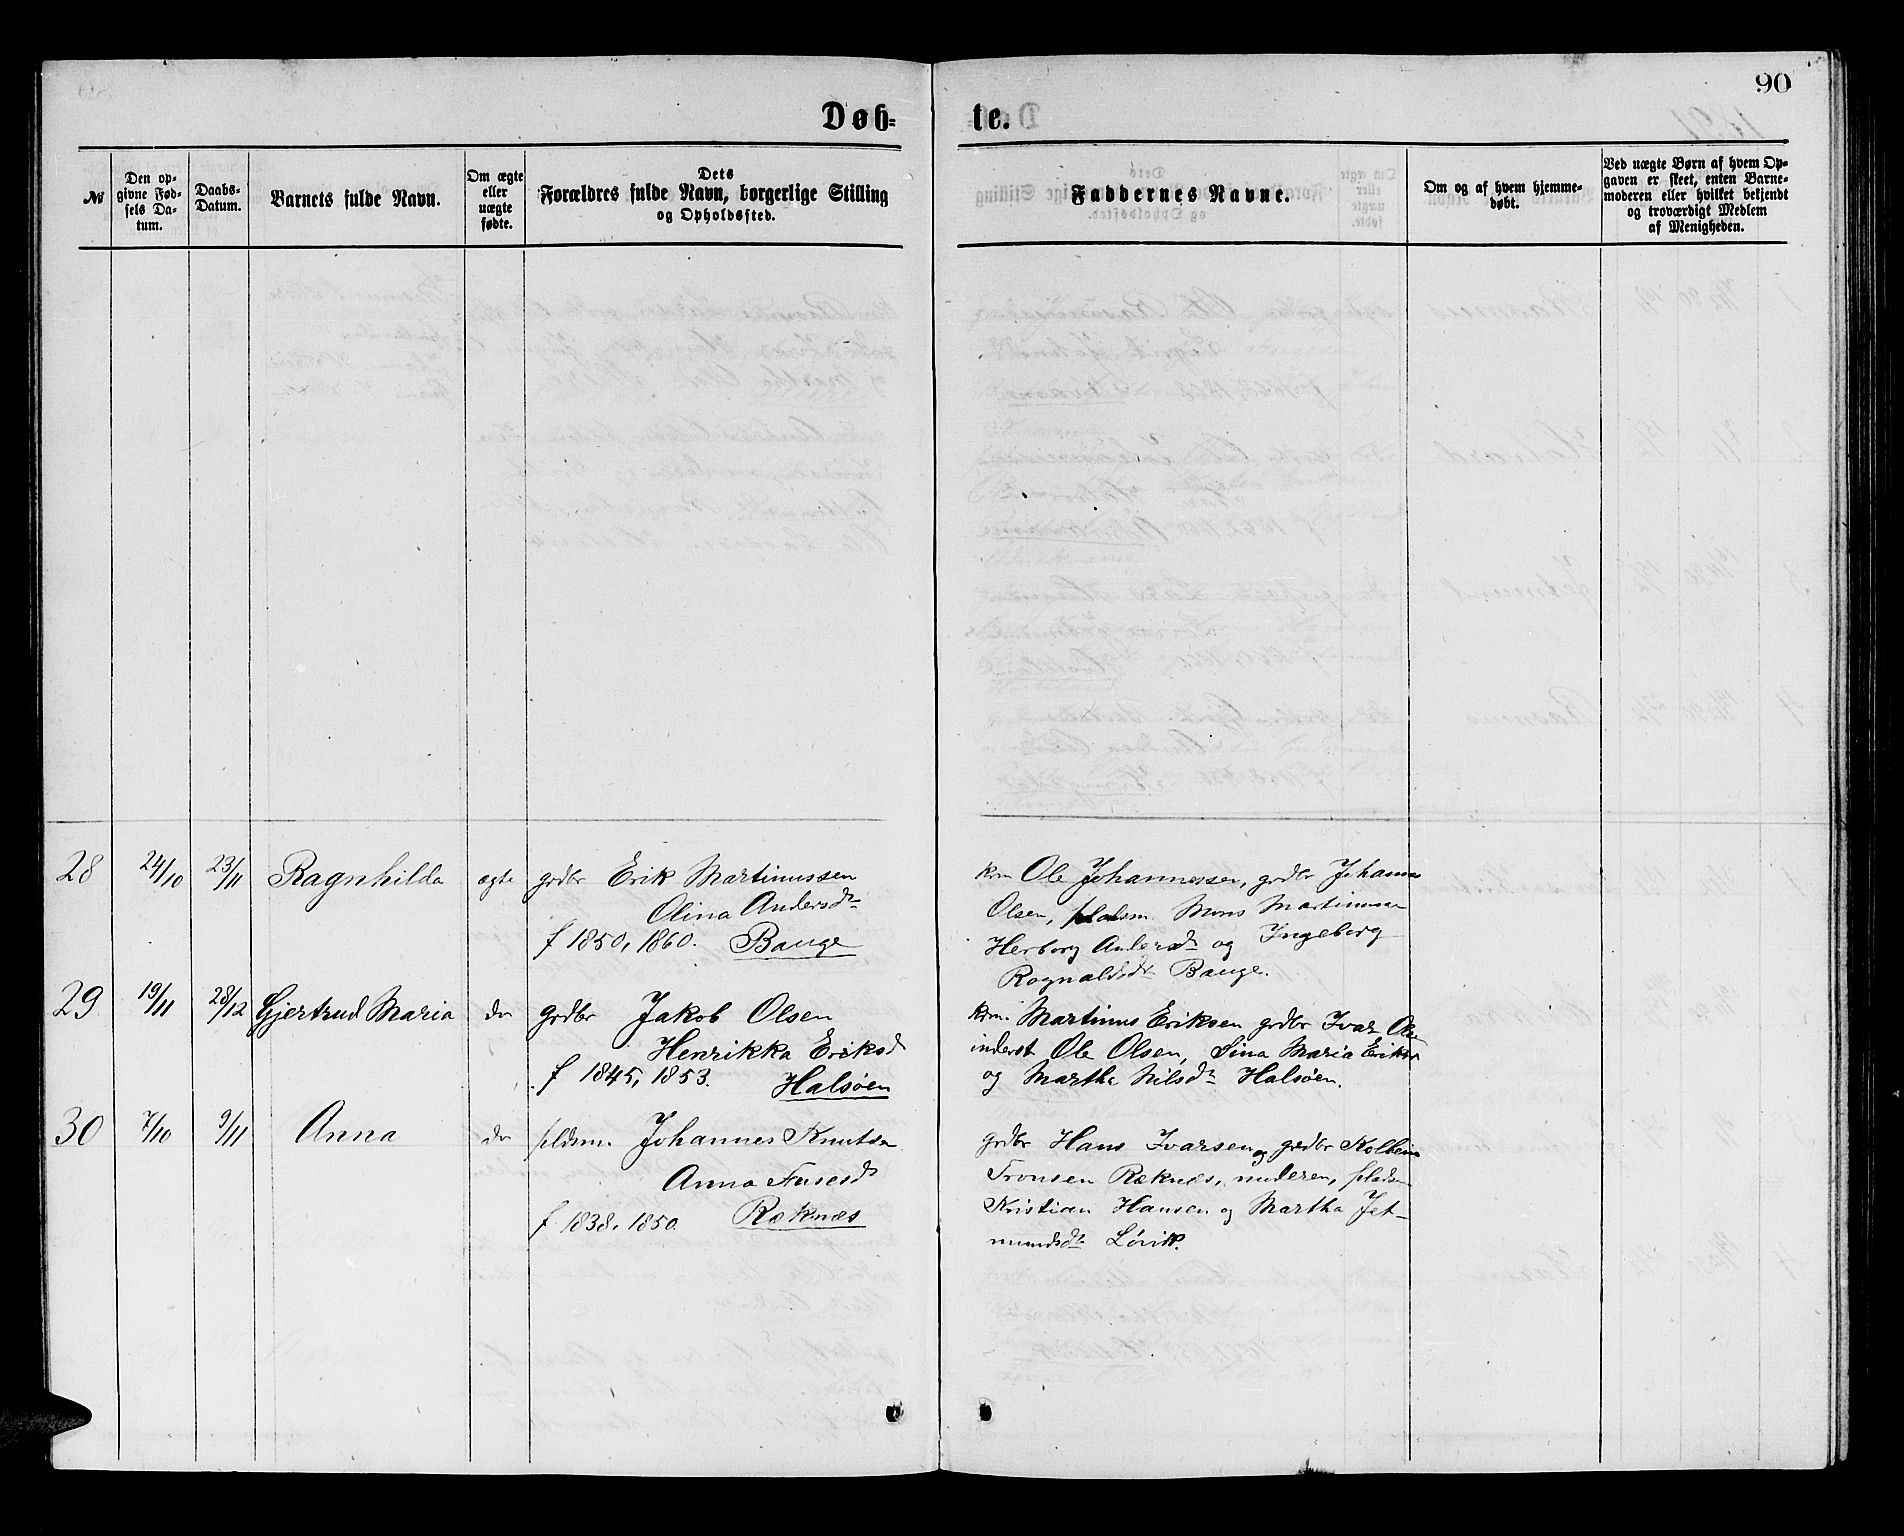 90
Døb-
te.
№
Den op-
givne Fød-
sels Da-
tum.
Daabs-
Datum.
Barnets fulde Navn.
Om ægte
eller
uægte
fødte.
Dets
Forældres fulde Navn, borgerlige Stilling
og Opholdssted.
Faddernes Navne.
Om og af hvem hjemme-
døbt.
Ved uægte Børn af hvem Op-
gaven er skeet, enten Barne-
moderen eller hvilket bekjendt
og troværdigt Medlem
af Menigheden.
28 24/10 23/11 Ragnhilda ægte grdbr Erik Martinussen
Olina Andersdtr
f 1850, 1860. Bauge
Ole Johannessen, grdbr Johannes
Olsen, pladsm. Mons Martinussen
Herborg Andersdtr og Ingeborg
Rognaldsdtr Bauge.
29 19/11 28/12 Gjertrud Maria do grdbr Jakob Olsen
Henrikka Eriksd
f 1845, 1853. Halsøen
Martinus Eriksen grdbr Ivar Ole
inderst Ole Olsen, Sina Maria Eriksd
og Martha Nilsdtr Halsøen.
30 7/10 9/11 Anna do pldsm. Johannes Knutsen
Anna
f 1838, 1850. Ræknæs
grdbr Hans Ivarsen og grdbr Kolbein
Tronsen Ræknæs, moderen, pladsm
Kristian Hansen og Martha Jet-
mundsdtr Løvik.